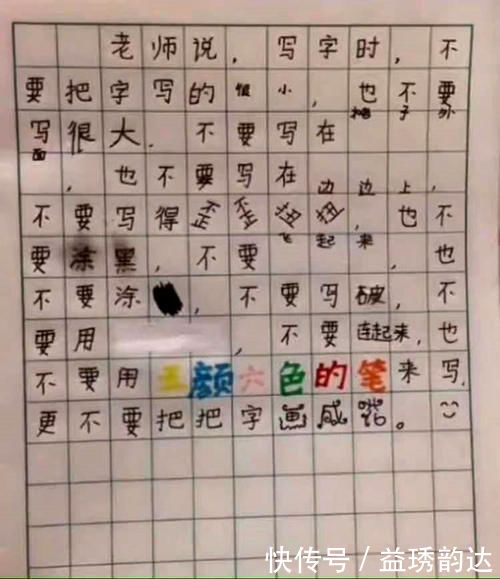 老师说，写字时，不
要把字写的很小，也不要
写很大．不要写在格子外
面，也不要写在边边上，
不要写得歪歪扭扭，也不
要涂黑，不要飞起来，也
不要涂，不要写破，不
要用，不要连起来，也
不要用五颜六色的笔来写，
更不要把把字画。
快传号 / 益琇韵达